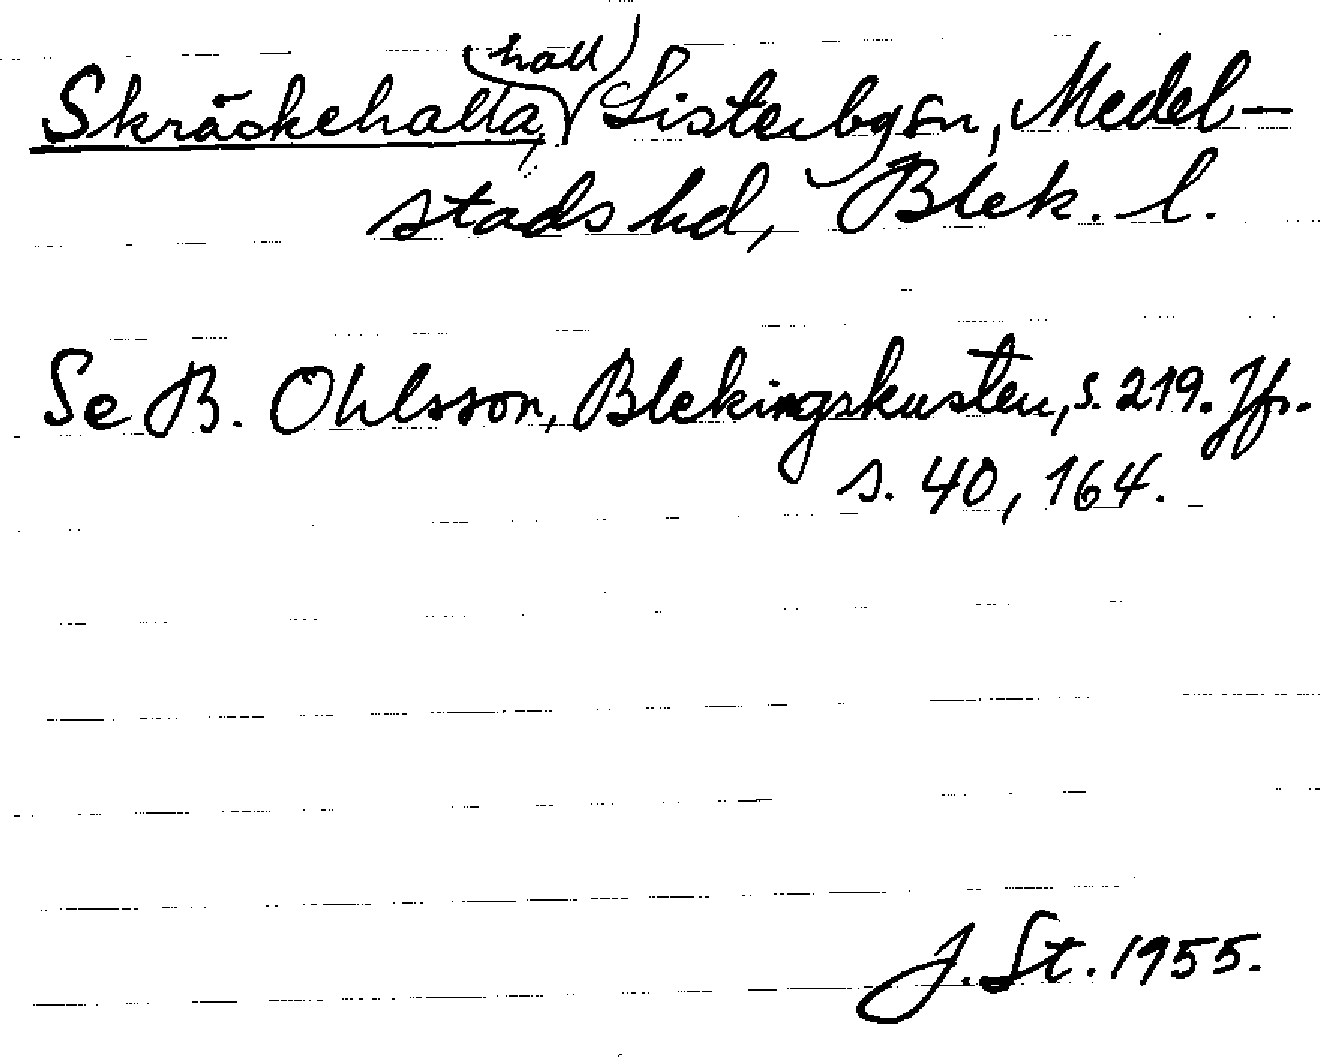 Skräckehalla, (hall) Listerby sn, Medel-
stads hd, Blek. l.
Se B. Ohlsson, Blekingskusten, s. 219. Jfr.
s. 40, 164.
J. St. 1955.